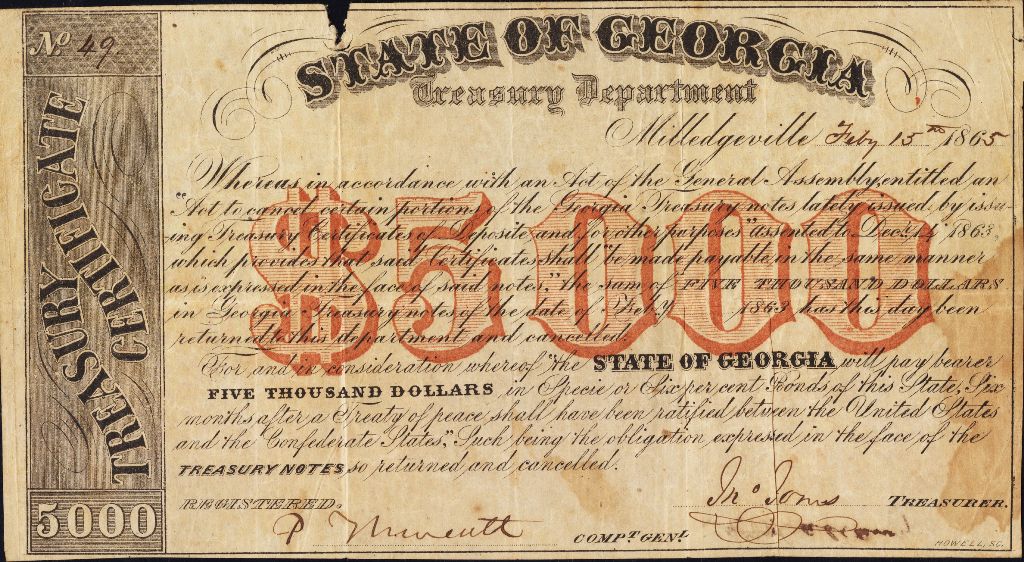 No 49
TREASURY CERTIFICATE
5000
STATE OF GEORGIA
Treasury Department
Milledgeville Feby 15th 1865
$5000
Whereas in accordance with an Act of the General Assembly, entitled an
"Act to cancel certain portions of the Georgia Treasury notes lately issued by issu-
ing Treasury Certificates of Deposite, and for other purposes" assented to Dec. 14 1863,
which provides that said Certificates shall "be made payable in the same manner
as is expressed in the face of said notes"; the sum of FIVE THOUSAND DOLLARS
in Georgia Treasury notes of the date of Feby 1863 has this day been
returned to this department and cancelled.
For and in consideration whereof "the STATE OF GEORGIA will pay bearer
FIVE THOUSAND DOLLARS in Specie or Six per cent Bonds of this State, Six
months after a Treaty of peace shall have been ratified between the United States
and the Confederate States". Such being the obligation expressed in the face of the
TREASURY NOTES so returned and cancelled.
REGISTERED.
Jno Jones TREASURER.
COMPT. GENL
HOWELL, SC.